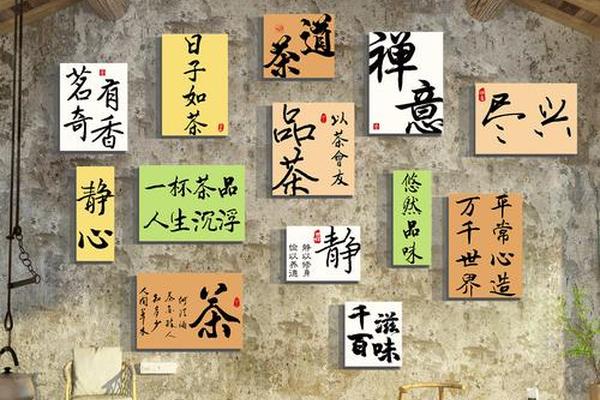 茗有
奇香
日子如茶
茶道
禅意
尽兴
品茶
以茶會友
静心
一杯茶品
人生沉浮
悠然品味
平常心造
万千世界
静
静以修身
俭以养德
茶
知多少
人间草木
千百
滋味